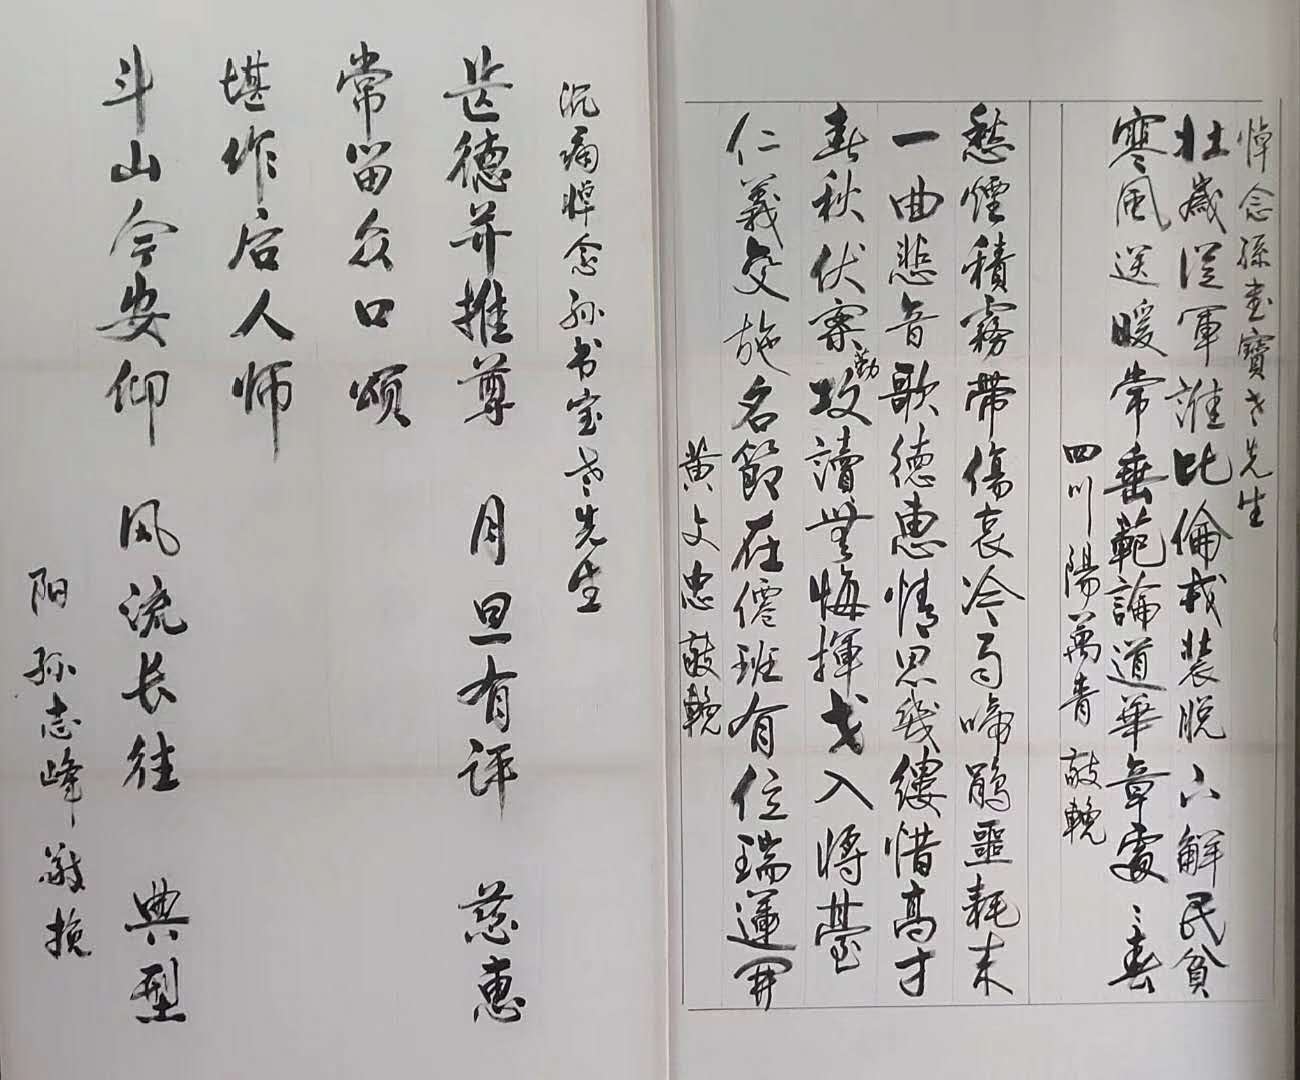 悼念孫書寶老先生
壯歲從軍誰比倫戎裝脫下解民貧
寒風送暖常垂範論道華章處〻春
四川陽萬青敬輓
愁煙積霧帶傷哀冷雨啼鵑噩耗來
一曲悲音歌德惠情思幾縷惜高才
春秋伏案勤攻讀無悔揮戈入將臺
仁義交施名節在僊班有位瑞蓮開
黄文忠敬輓
沉痛悼念孙书宝老先生
齿德并推尊 月旦有评 慈惠
常留众口颂
堪作后人师
斗山今安仰 风流长往 典型
阳孙志峰敬挽